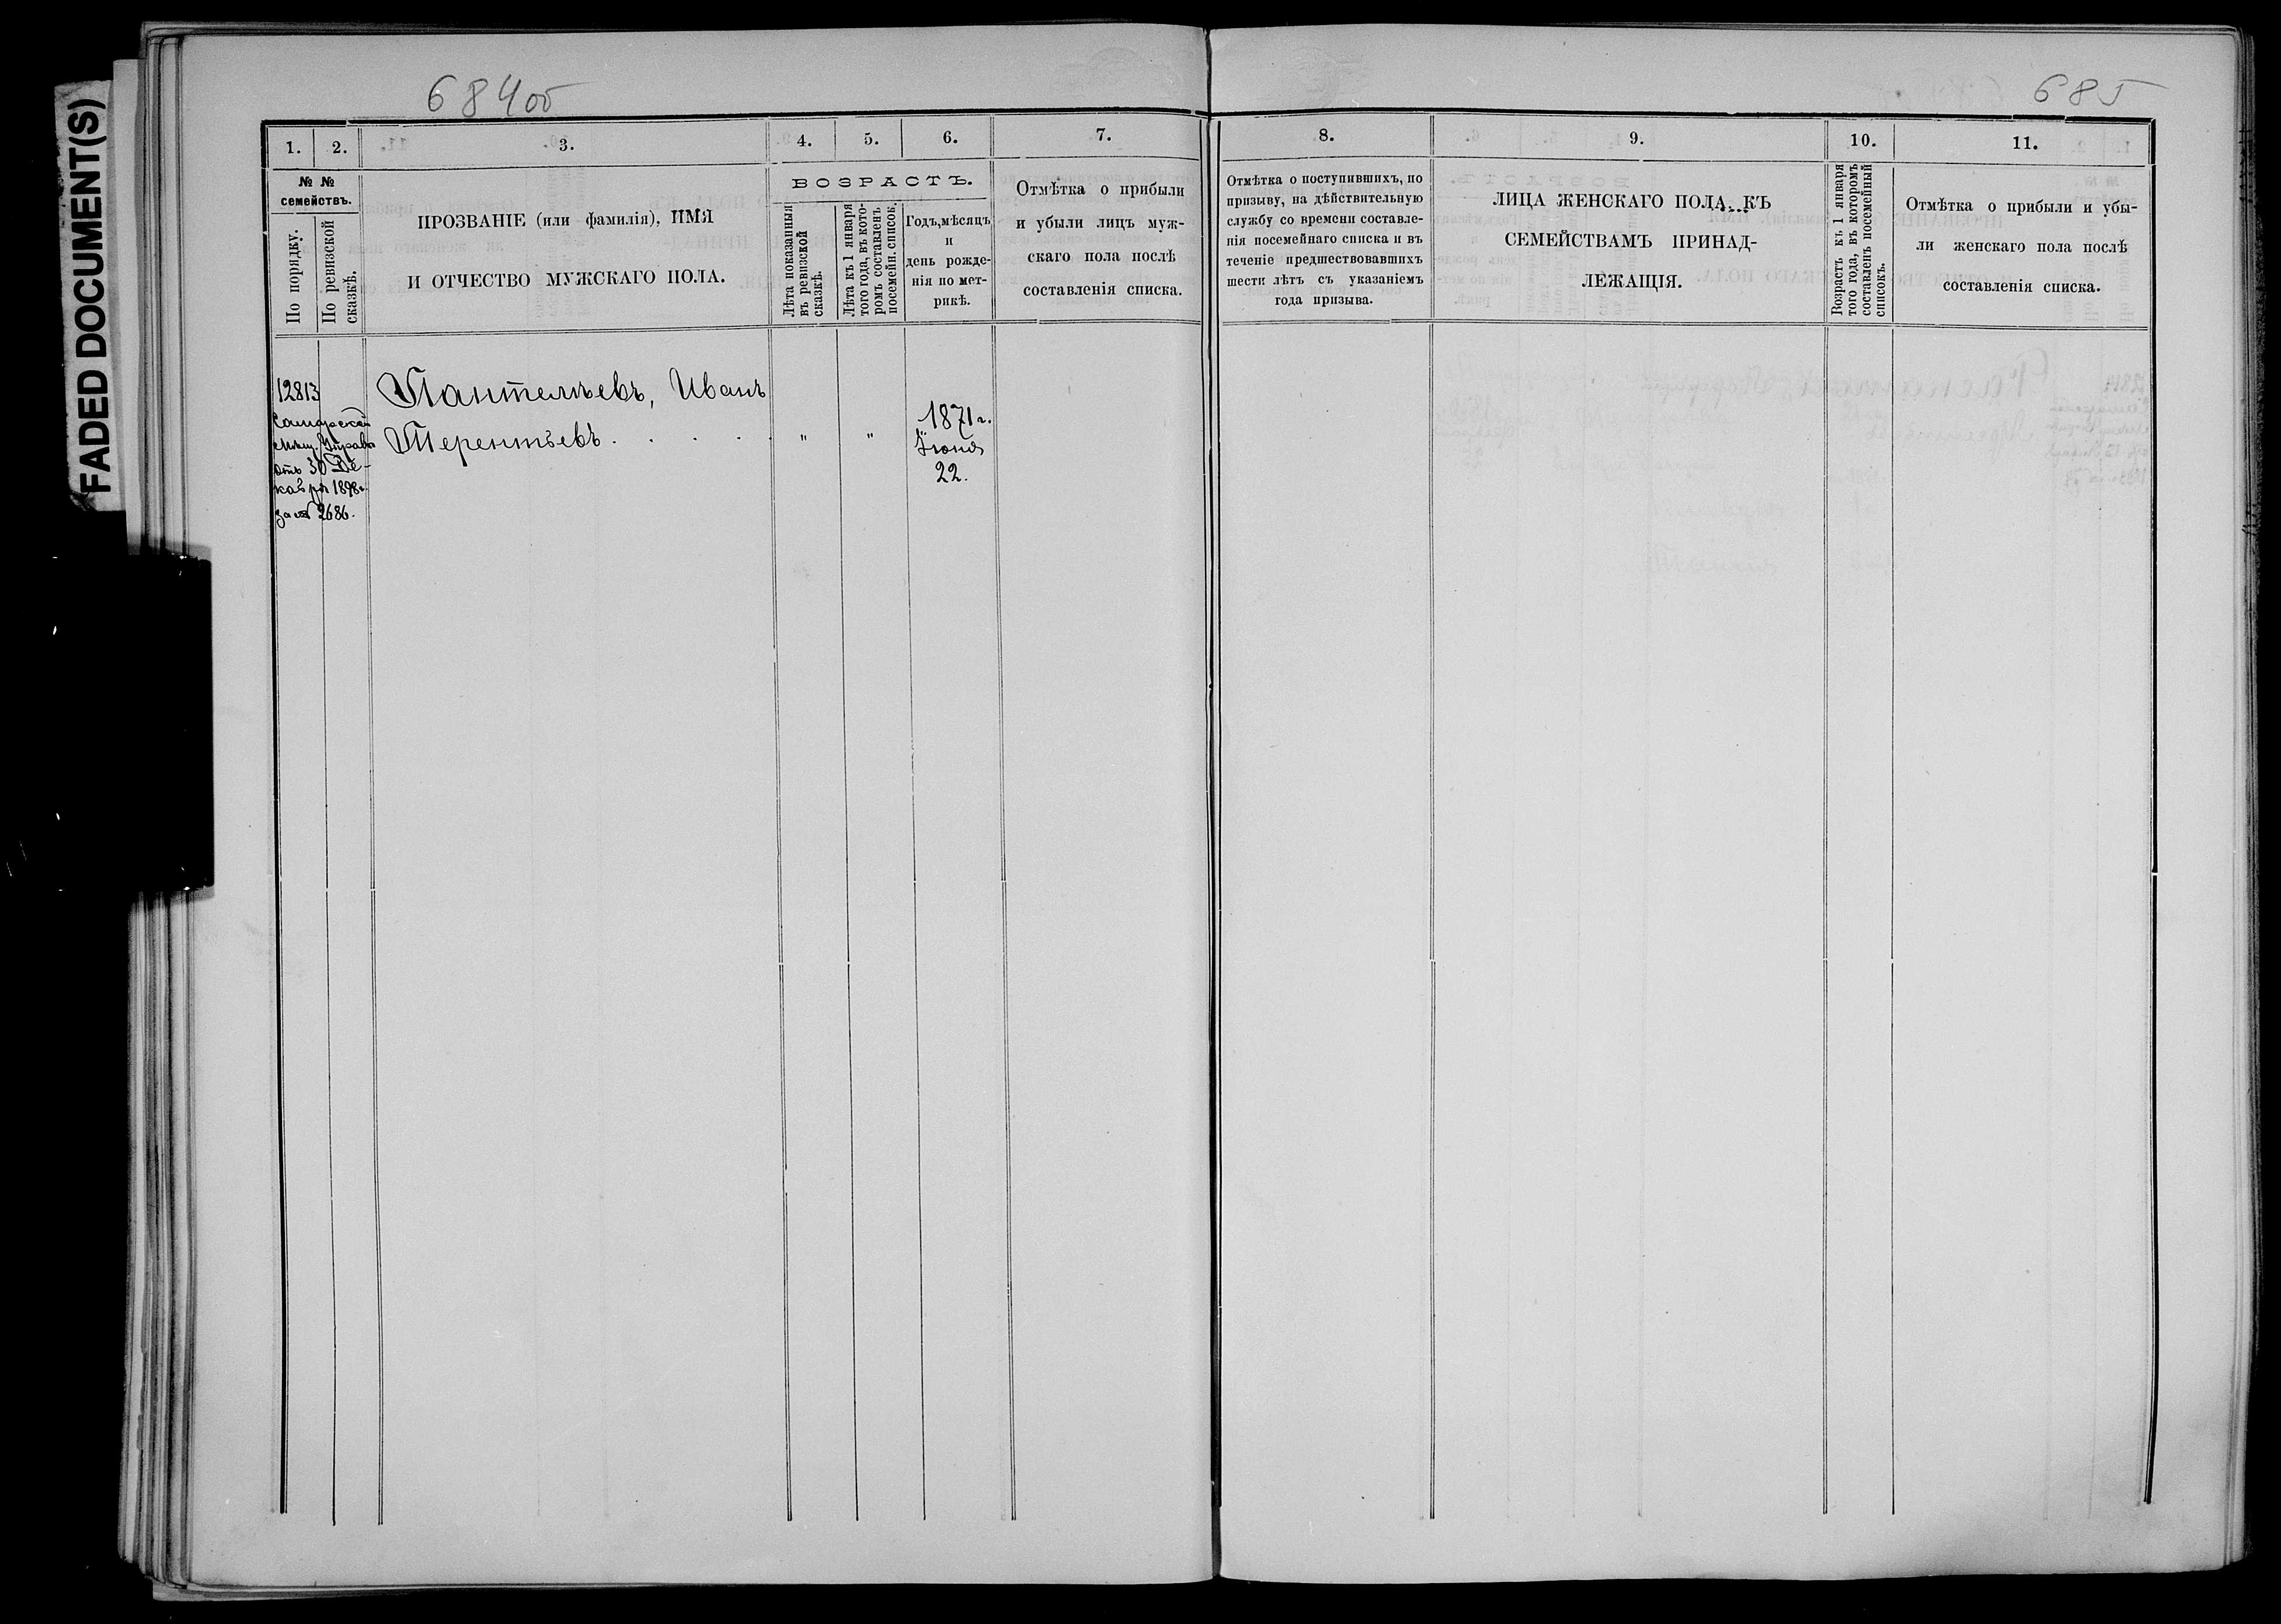 FADED DOCUMENT(S)
684об
685
1. 2. 3. 4. 5. 6. 7.
№ №
семействъ.
По порядку.
По ревизской
сказкѣ.
ПРОЗВАНІЕ (или фамилія), ИМЯ
И ОТЧЕСТВО МУЖСКАГО ПОЛА.
ВОЗРАСТЪ.
Лѣта показанныя
въ ревизской
сказкѣ.
Лѣта къ 1 января
того года, въ кото-
ромъ составленъ
посемейн. список.
Годъ, мѣсяцъ
и
день рожде-
нія по мет-
рикѣ.
Отмѣтка о прибыли
и убыли лицъ муж-
скаго пола послѣ
составленія списка.
12813
Самарской
мѣщ. Управы
отъ 30 Де-
кабря 1898 г.
за № 2686.
Пантелѣевъ, Иванъ
Терентьевъ. . . . . " "
1871 г.
Іюня
22.
8. 9. 10. 11.
Отмѣтка о поступившихъ, по
призыву, на дѣйствительную
службу со времени составле-
нія посемейнаго списка и въ
теченіе предшествовавшихъ
шести лѣтъ съ указаніемъ
года призыва.
ЛИЦА ЖЕНСКАГО ПОЛА, КЪ
СЕМЕЙСТВАМЪ ПРИНАД-
ЛЕЖАЩІЯ.
Возрастъ къ 1 января
того года, въ которомъ
составленъ посемейный
списокъ.
Отмѣтка о прибыли и убы-
ли женскаго пола послѣ
составленія списка.